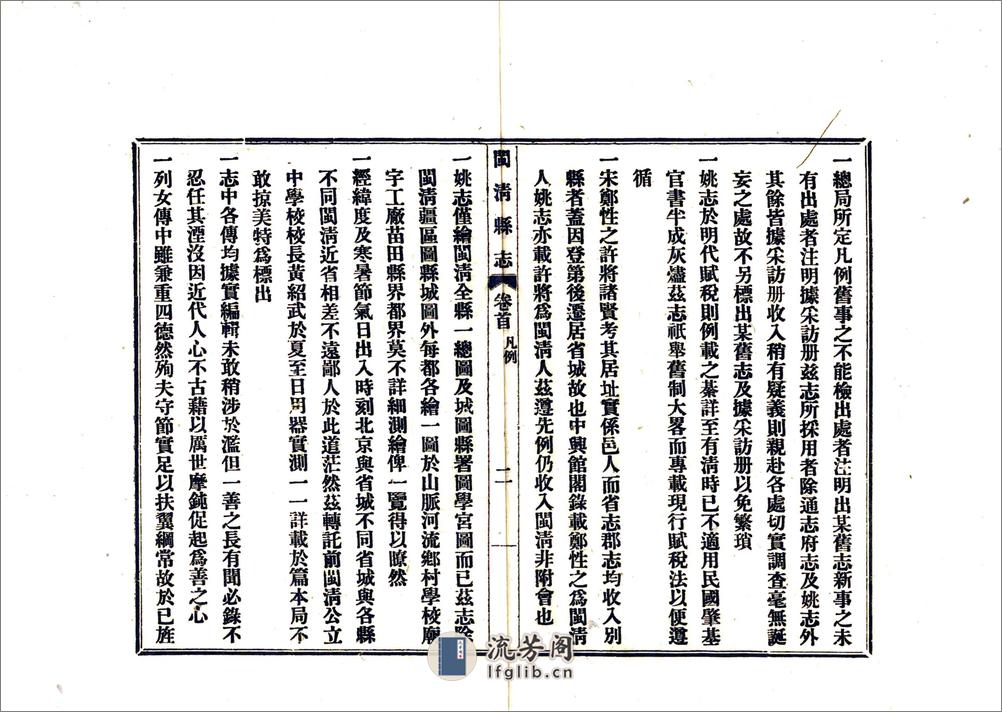 一總局所定凡例舊事之不能檢出處者注明出某舊志新事之未
有出處者注明據采訪册茲志所採用者除通志府志及姚志外
其餘皆據采訪册收入稍有疑義則親赴各處切實調查毫無誕
妄之處故不另標出某舊志及據采訪册以免繁瑣
一姚志於明代賦稅則例載之綦詳至有淸時已不適用民國肇基
官書半成灰燼茲志祇舉舊制大畧而專載現行賦稅法以便遵
循
一宋鄭性之許將諸賢考其居址實係邑人而省志郡志均收入別
縣者蓋因登第後遷居省城故也中興館閣錄載鄭性之爲閩淸
人姚志亦載許將爲閩淸人茲遵先例仍收入閩淸非附會也
閩淸縣志 卷首 凡例 二
一姚志僅繪閩淸全縣一總圖及城圖縣署圖學宮圖而已茲志除
閩淸疆區圖縣城圖外每都各繪一圖於山脈河流鄉村學校廟
字工廠苗田縣界都界莫不詳細測繪俾一覽得以瞭然
一經緯度及寒暑節氣日出入時刻北京與省城不同省城與各縣
不同閩淸近省相差不遠鄙人於此道茫然茲轉託前閩淸公立
中學校校長黃紹武於夏至日用器實測一一詳載於篇本局不
敢掠美特爲標出
一志中各傳均據實編輯未敢稍涉於濫但一善之長有聞必錄不
忍任其湮沒因近代人心不古藉以厲世摩鈍促起爲善之心
一列女傳中雖兼重四德然殉夫守節實足以扶翼綱常故於已旌
流芳阁
lfglib.cn